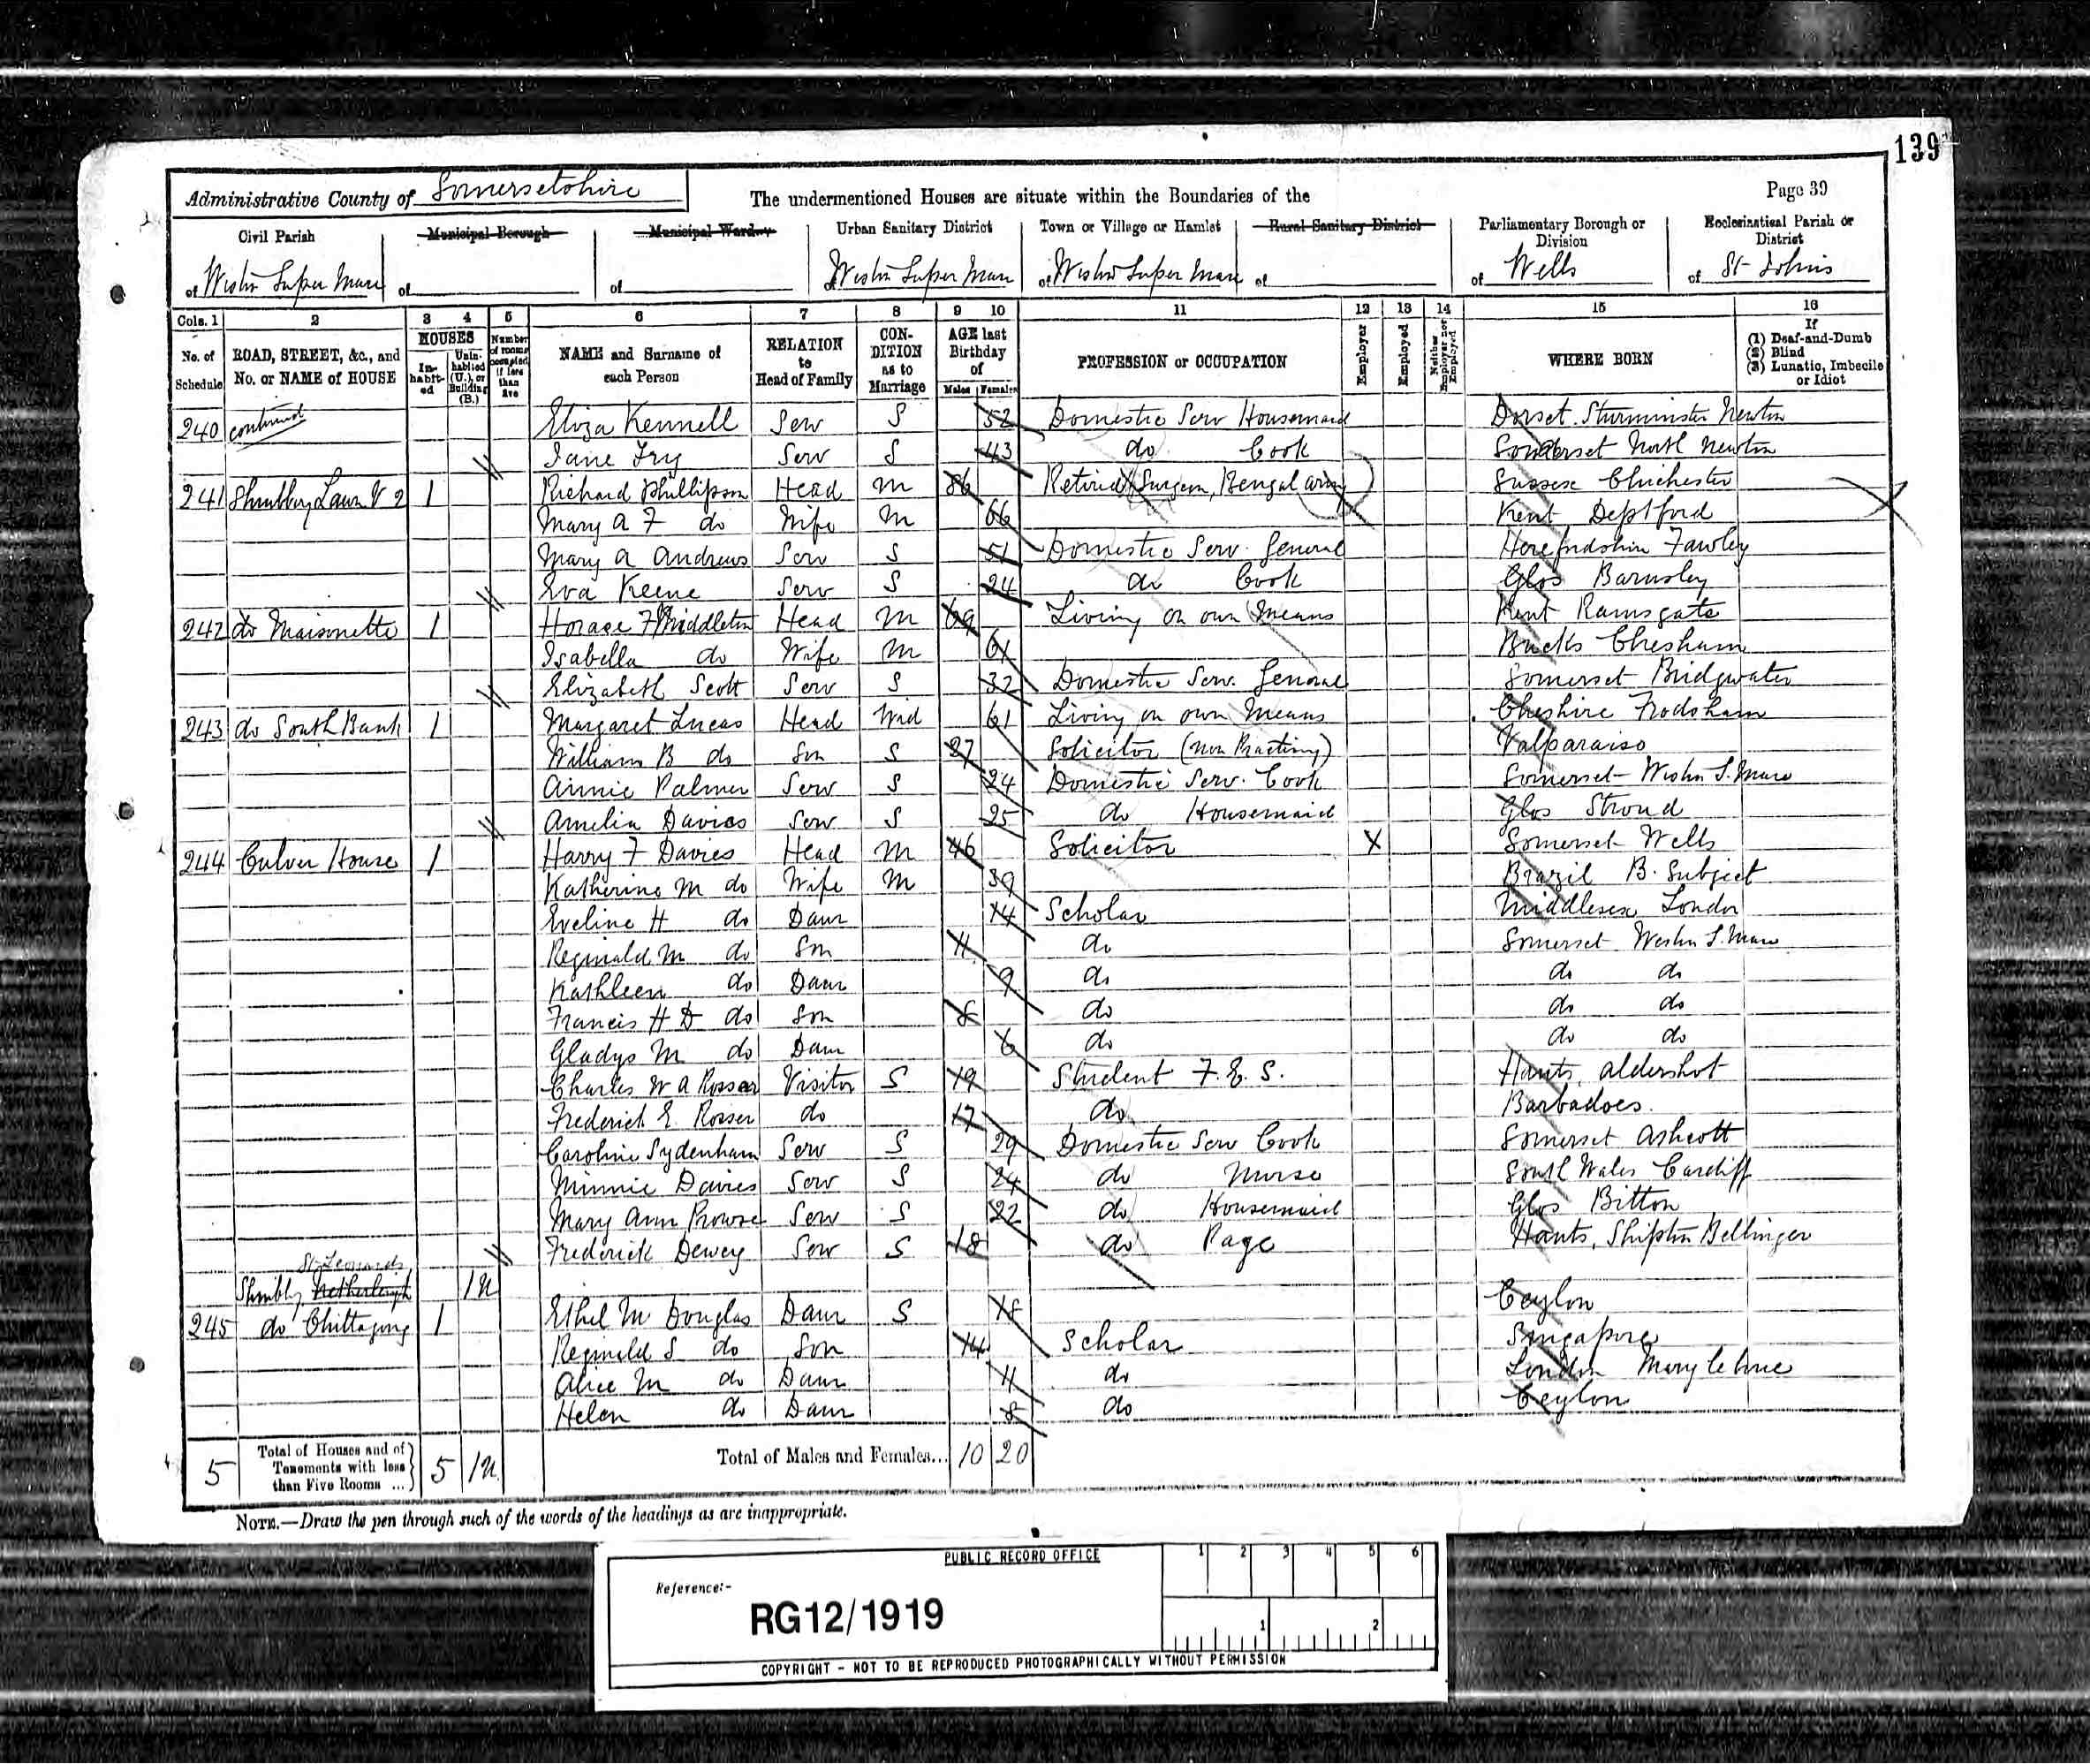 139
Administrative County of Somersetshire The undermentioned Houses are situate within the Boundaries of the Page 39
Civil Parish Municipal Borough Municipal Ward Urban Sanitary District Town or Village or Hamlet Rural Sanitary District Parliamentary Borough or Division Ecclesiastical Parish or District
of Weston Super Mare of of of Weston Super Mare of Weston Super Mare of of Wells of St Johns
Cols. 1 2 3 4 5 6 7 8 9 10 11 12 13 14 15 16
No. of Schedule ROAD, STREET, &c., and No. or NAME of HOUSE HOUSES Inhabited Uninhabited (U.), or Building (B.) Number of rooms occupied if less than five NAME and Surname of each Person RELATION to Head of Family CONDITION as to Marriage AGE last Birthday of Males Females PROFESSION or OCCUPATION Employer Employed Neither Employer nor Employed WHERE BORN If (1) Deaf-and-Dumb (2) Blind (3) Lunatic, Imbecile or Idiot
240 continued Eliza Kennell Serv S 52 Domestic Serv Housemaid Dorset. Sturminster Newton
Jane Fry Serv S 43 do Cook Somerset North Newton
241 Shrubbery Lawn V 2 1 Richard Phillipson Head M 86 Retired Surgeon, Bengal Army Sussex Chichester
Mary A F do Wife M 66 Kent Deptford
Mary A Andrews Serv S 51 Domestic Serv. General Herefordshire Fawley
Eva Keene Serv S 24 do Cook Glos Barnsley
242 do Maisonette 1 Horace F Middleton Head M 69 Living on own Means Kent Ramsgate
Isabella do Wife M 61 Bucks Chesham
Elizabeth Scott Serv S 32 Domestic Serv. General Somerset Bridgwater
243 do South Bank 1 Margaret Lucas Head Wid 61 Living on own Means Cheshire Frodsham
William B do Son S 27 Solicitor (non Practising) Valparaiso
Annie Palmer Serv S 24 Domestic Serv. Cook Somerset Weston S. Mare
Amelia Davies Serv S 25 do Housemaid Glos Stroud
244 Culver House 1 Harry F Davies Head M 46 Solicitor X Somerset Wells
Katherine M do Wife M 39 Brazil B. Subject
Eveline H do Daur 14 Scholar Middlesex London
Reginald M do Son 11 do Somerset Weston S. Mare
Kathleen do Daur 9 do do do
Francis H D do Son 8 do do do
Gladys M do Daur 6 do do do
Charles W A Rosser Visitor S 19 Student F. E. S. Hants, Aldershot
Frederick E. Rosser do 17 do Barbadoes.
Caroline Sydenham Serv S 29 Domestic Serv Cook Somerset Ashcott
Minnie Davies Serv S 24 do Nurse South Wales Cardiff
Mary Ann Prowse Serv S 22 do Housemaid Glos Bitton
Frederick Dewey Serv S 18 do Page Hants, Shipton Bellinger
St Leonards
Shrubby Netherleigh 1U
245 do Chittagong 1 Ethel M Douglas Daur S 18 Ceylon
Reginald S do Son 14 Scholar Singapore
Alice M do Daur 11 do London Marylebone
Helen do Daur 8 do Ceylon
5 Total of Houses and of Tenements with less than Five Rooms ... 5 1U Total of Males and Females... 10 20
NOTE.—Draw the pen through such of the words of the headings as are inappropriate.
PUBLIC RECORD OFFICE 1 2 3 4 5 6
Reference:-
RG12/1919 1 2
COPYRIGHT - NOT TO BE REPRODUCED PHOTOGRAPHICALLY WITHOUT PERMISSION